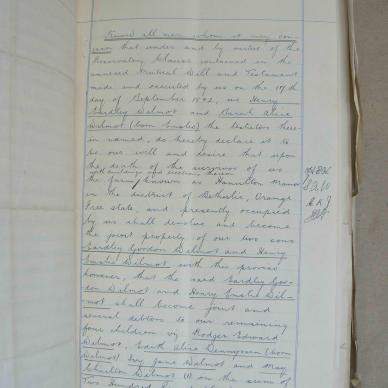 Know all men whom it may con-
cern that under and by virtue of the
Reservatory Clause contained in the
annexed Mutual Will and Testament
made and executed by us on the 17th
day of September 1892, we Henry
Eardley Wilmot and Sarah Alice
Wilmot (born Smales) the Testators there-
in named, do hereby declare it to
be our will and desire that upon
the death of the survivor of us
with buildings and erections thereon
the farm known as Hamilton
in the district of Bethulie, Orange
Free State and presently occupied
by us shall devolve and become
the joint property of our two sons
Eardley Gordon Wilmot and Henry
Smales Wilmot with this proviso
however, that the said Eardley Gor-
don Wilmot and Henry Smales Wil-
mot shall become joint and
several debtors to our remaining
four children viz Rodger Edward
Wilmot, Edith Alice (born
Wilmot) Ivy Jane Wilmot and May
Wilmot in the sum of
Two Hundred